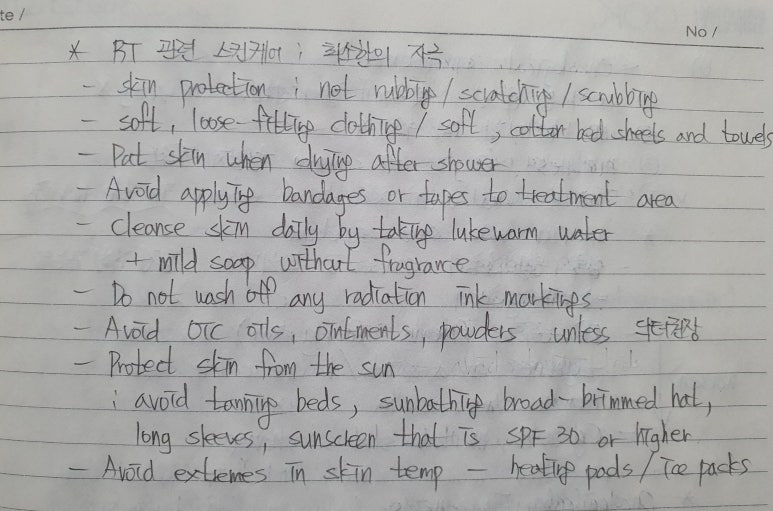 te /
No /
* RT 관련 스킨케어 ; 최소한의 자극
- skin protection ; not rubbing / scratching / scrubbing
- soft, loose-fitting clothing / soft, cotton bed sheets and towels
- Pat skin when drying after shower
- Avoid applying bandages or tapes to treatment area
- Cleanse skin daily by taking lukewarm water
+ mild soap without fragrance
- Do not wash off any radiation ink markings.
- Avoid OTC oils, ointments, powders unless 닥터권장
- Protect skin from the sun
; avoid tanning beds, sunbathing broad-brimmed hat,
long sleeves, sunscreen that is SPF 30 or higher
- Avoid extremes in skin temp - heating pads / ice packs